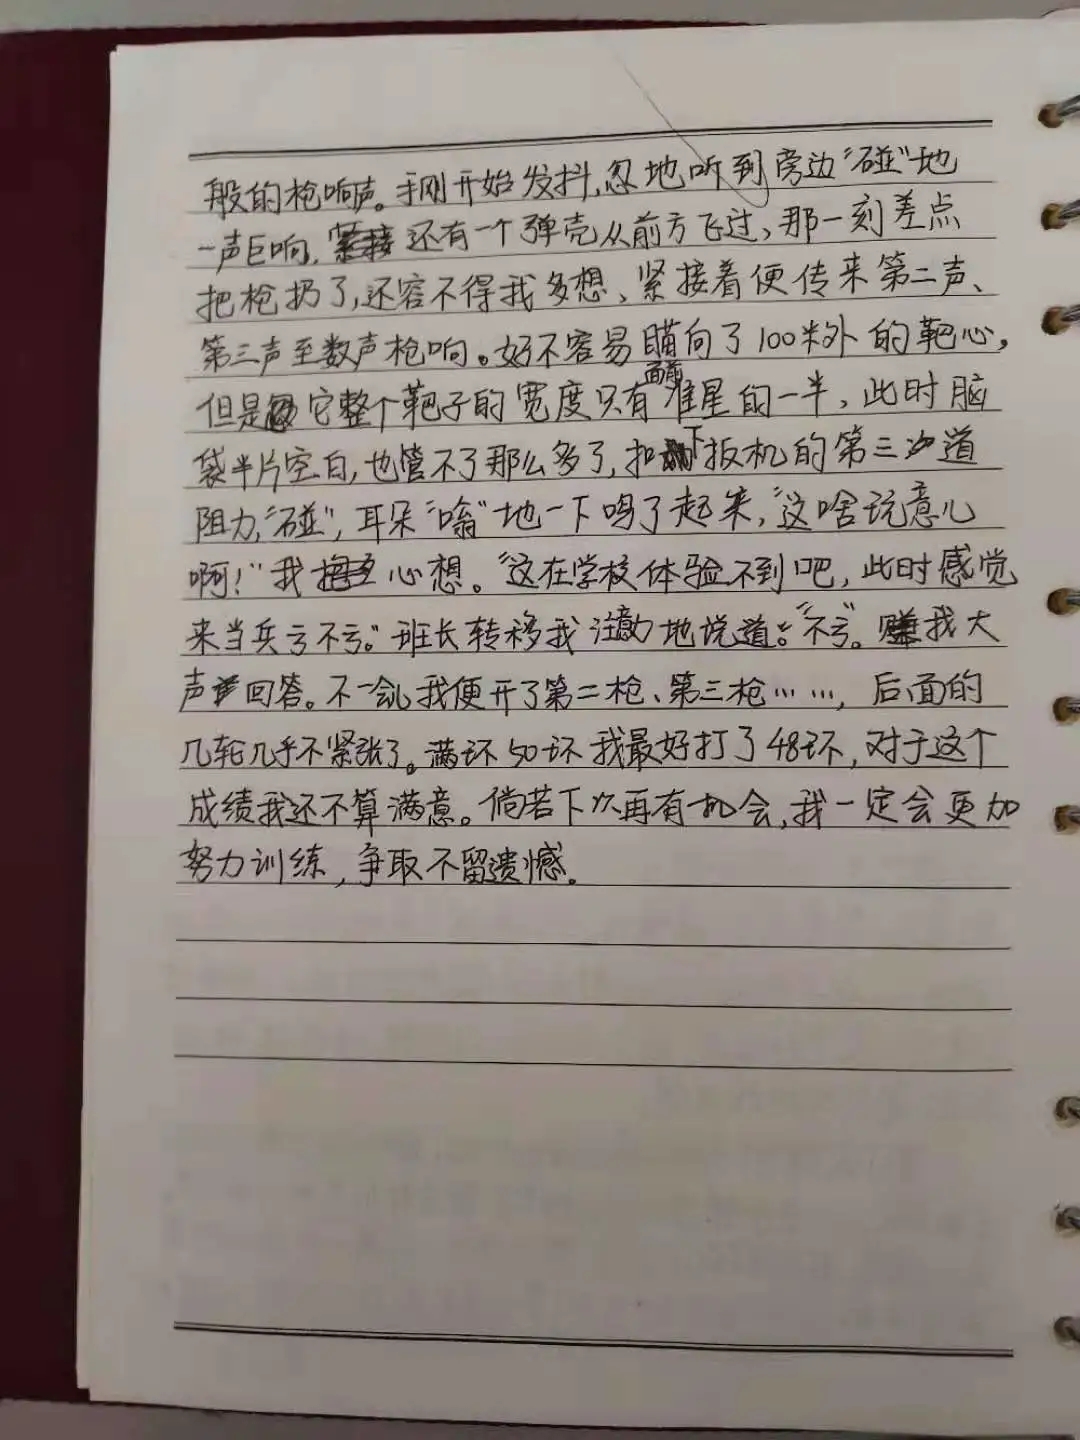 般的枪响声。手刚开始发抖,忽地听到旁边“碰”地
一声巨响,还有一个弹壳从前方飞过、那一刻差点
把枪扔了,还容不得我多想、紧接着便传来第二声、
第三声至数声枪响。好不容易瞄向了100米外的靶心,
但是它整个靶子的宽度只有面前准星的一半、此时脑
袋半片空白,也管不了那么多了,扣下扳机的第三次道
阻力,“碰”,耳朵“嗡”地一下鸣了起来,“这啥玩意儿
啊!”我心想。“这在学校体验不到吧,此时感觉
来当兵亏不亏。”班长转移我注意力地说道。“不亏”。我大
声回答。不一会儿我便开了第二枪、第三枪……,后面的
几轮几乎不紧张了。满环50环我最好打了48环,对于这个
成绩我还不算满意。倘若下次再有机会,我一定会更加
努力训练,争取不留遗憾。